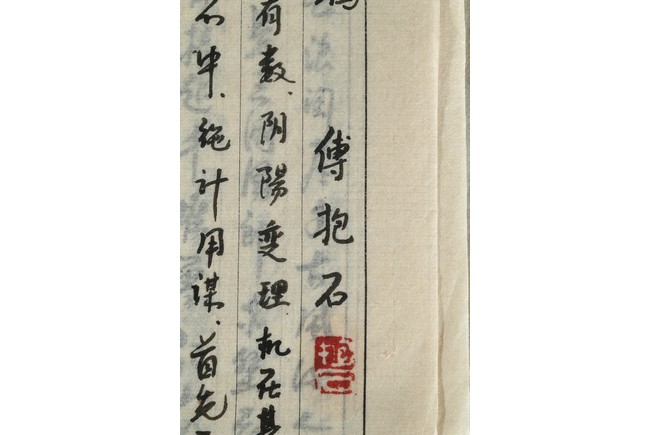 傅抱石
有数、阴陽变理、机在其
不中、绝计用谋、首先